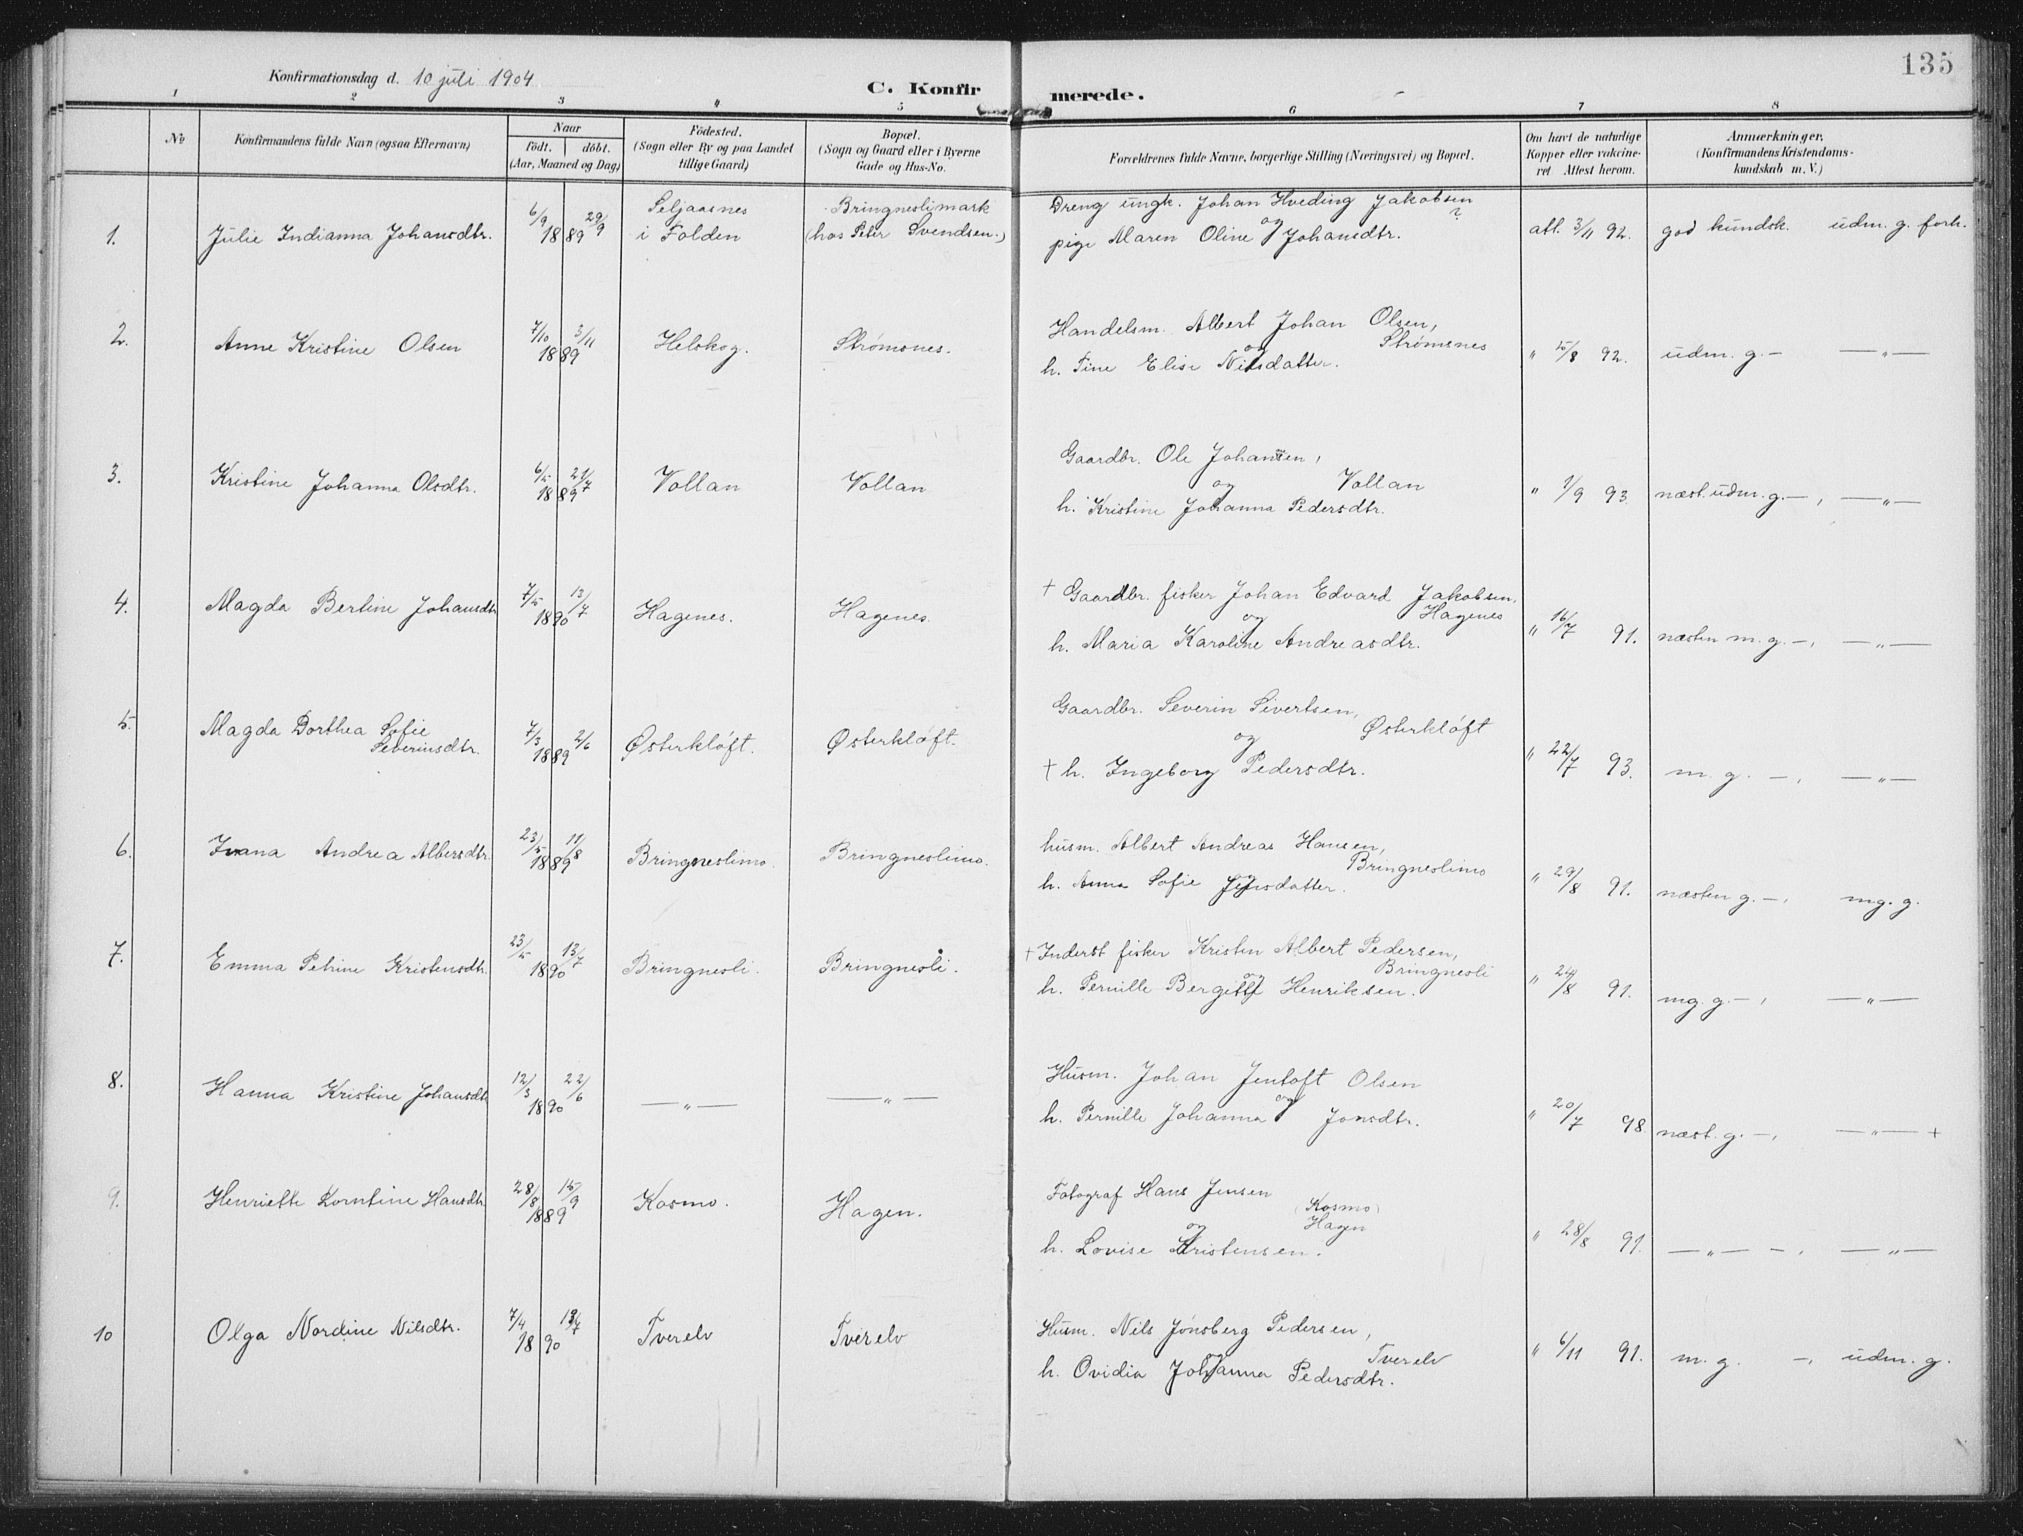 135
Konfirmationsdag d. 10 juli 1904
C. Konfirmerede.
1 2 3 4 5 6 7 8
No
Konfirmandens fulde Navn (ogsaa Efternavn)
Naar
födt. döbt.
(Aar, Maaned og Dag)
Födested.
(Sogn eller By og paa Landet
tillige Gaard)
Bopæl.
(Sogn og Gaard eller i Byerne
Gade og Hus-No.
Forældrenes fulde Navne, borgerlige Stilling (Næringsvei) og Bopæl.
Om havt de naturlige
Kopper eller vakcine-
ret Attest herom.
Anmærkninger.
(Konfirmandens Kristendoms-
kundskab m. V.)
1. Julie Indianna Johansdtr. 6/9 29/9 1889
Seljaasnes
i Folden
Bringneslimark
(hos Peter Svendsen.)
Dreng ungk. Johan Hveding Jakobsen
og ?
pige Maren Oline Johansdtr.
att. 3/11 92. god kundsk. udm. g. forh.
2. Anne Kristine Olsen 7/10 3/11 1889 Helskog. Strømsnes.
Handelsm. Albert Johan Olsen,
og Strømsnes
h. Tine Elise Nilsdatter.
" 15/8 92. udm. g. — —„—
3. Kristine Johanna Olsdtr. 6/5 21/7 1889 Vollan Vollan
Gaardbr. Ole Johansen,
og Vollan
h. Kristine Johanna Pedersdtr.
" 1/9 93 næst. udm. g. —, —„—
4. Magda Bertine Johansdtr 7/5 13/7 1890 Hagenes. Hagenes.
+ Gaardbr. fisker Johan Edvard Jakobsen,
og Hagenes
h. Maria Karoline Andreasdtr.
" 16/7 91. næsten m. g. —, —„—
5. Magda Dorthea Sofie
Severinsdtr. 7/3 2/6 1889 Østerkløft. Østerkløft.
Gaardbr. Severin Sivertsen,
og Østerkløft
+ h. Ingeborg Pedersdtr.
" 22/7 93. m. g. —, —„—
6. Ivana Andrea Albersdtr. 23/5 11/8 1889 Bringneslimo. Bringneslimo.
husm. Albert Andreas Hansen,
og Bringneslimo
h. Anna Sofie Jensdatter.
" 29/8 91. næsten g. —, mg. g.
7. Emma Petrine Kristensdtr. 23/5 13/7 1890 Bringnesli. Bringnesli.
+ Inderst fisker Kristen Albert Pedersen,
og Bringnesli
h. Pernille Bergitte Henriksen.
" 24/8 91. mg. g. —, —„—
8. Hanna Kristine Johansdtr 12/3 22/6 1890 —„— —„—
Husm. Johan Jentoft Olsen
og
h. Pernille Johanna Jonsdtr.
" 20/7 98 næst. g. —, —„— +
9. Henriette Korntine Hansdtr. 28/8 15/9 1889 Kosmo. Hagen.
Fotograf Hans Jensen
og (Kosmo)
Hagen
h. Lovise Kristensen.
" 28/8 91. —„— —, —„—
10 Olga Nordine Nilsdtr. 7/4 13/7 1890 Tverelv Tverelv
Husm. Nils Jønsberg Pedersen,
og Tverelv
h. Ovidia Johanna Pedersdtr.
" 6/11 91. m. g. —, udm. g.